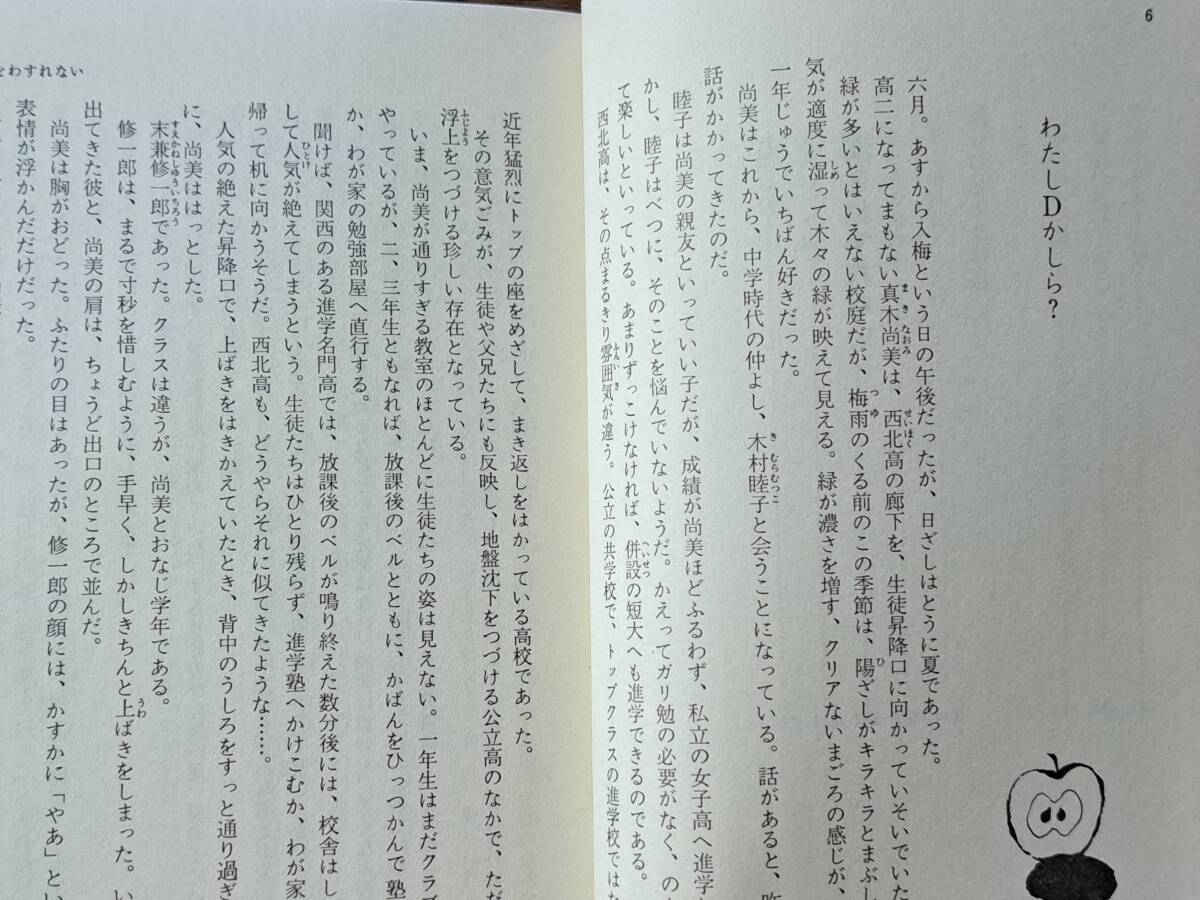 6
わたしDかしら？
六月。あすから入梅という日の午後だったが、日ざしはとうに夏であった。
高二になってまもない真木尚美は、西北高の廊下を、生徒昇降口に向かっていそいでいた
緑が多いとはいえない校庭だが、梅雨のくる前のこの季節は、陽ざしがキラキラとまぶし
気が適度に湿って木々の緑が映えて見える。緑が濃さを増す、クリアないまごろの感じが、
一年じゅうでいちばん好きだった。
尚美はこれから、中学時代の仲よし、木村睦子と会うことになっている。話があると、昨
話がかかってきたのだ。
睦子は尚美の親友といっていい子だが、成績が尚美ほどふるわず、私立の女子高へ進学
かし、睦子はべつに、そのことを悩んでいないようだ。かえってガリ勉の必要がなく、の
て楽しいといっている。あまりずっこけなければ、併設の短大へも進学できるのである。
西北高は、その点まるきり雰囲気が違う。公立の共学校で、トップクラスの進学校ではな
をわすれない
近年猛烈にトップの座をめざして、まき返しをはかっている高校であった。
その意気ごみが、生徒や父兄たちにも反映し、地盤沈下をつづける公立高のなかで、ただ
浮上をつづける珍しい存在となっている。
いま、尚美が通りすぎる教室のほとんどに生徒たちの姿は見えない。一年生はまだクラブ
やっているが、二、三年生ともなれば、放課後のベルとともに、かばんをひっつかんで塾
か、わが家の勉強部屋へ直行する。
聞けば、関西のある進学名門高では、放課後のベルが鳴り終えた数分後には、校舎はし
して人気が絶えてしまうという。生徒たちはひとり残らず、進学塾へかけこむか、わが家
帰って机に向かうそうだ。西北高も、どうやらそれに似てきたような……。
人気の絶えた昇降口で、上ばきをはきかえていたとき、背中のうしろをすっと通り過ぎ
に、尚美ははっとした。
末兼修一郎であった。クラスは違うが、尚美とおなじ学年である。
修一郎は、まるで寸秒を惜しむように、手早く、しかしきちんと上ばきをしまった。い
出てきた彼と、尚美の肩は、ちょうど出口のところで並んだ。
尚美は胸がおどった。ふたりの目はあったが、修一郎の顔には、かすかに「やあ」とい
表情が浮かんだだけだった。